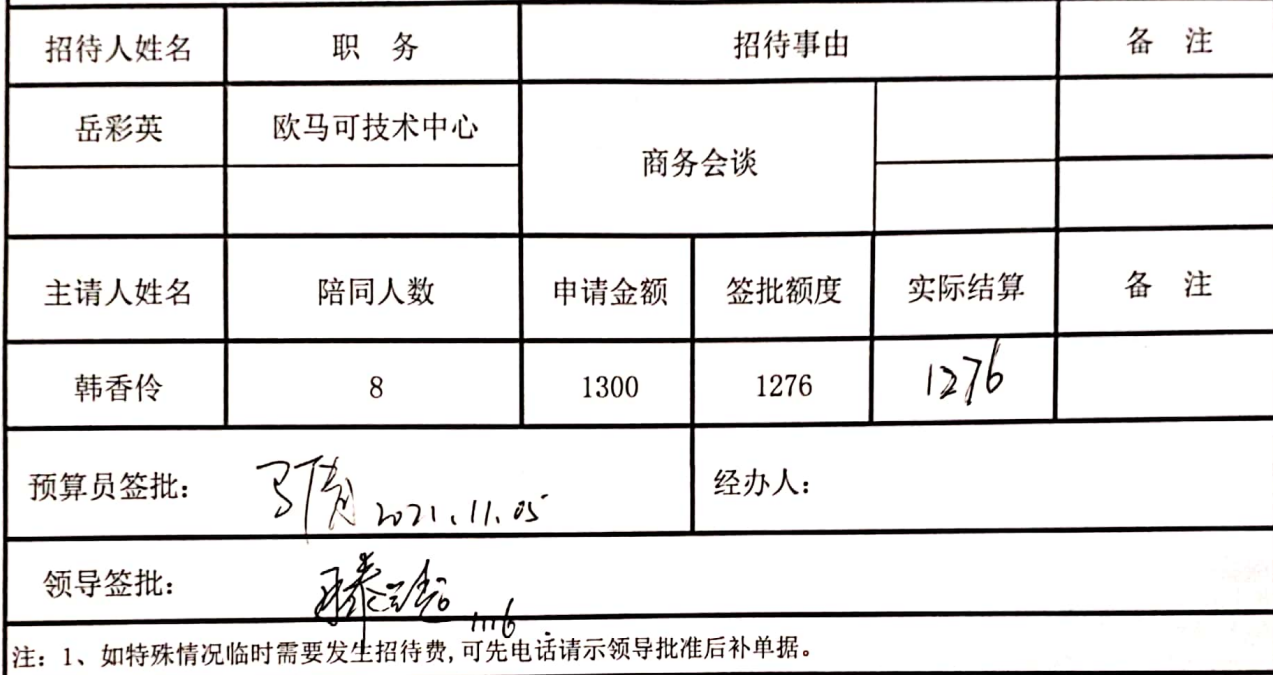 招待人姓名 职 务 招待事由 备 注
岳彩英 欧马可技术中心
商务会谈
主请人姓名 陪同人数 申请金额 签批额度 实际结算 备 注
韩香伶 8 1300 1276 1276
预算员签批： 2021.11.05 经办人：
领导签批：
注：1、如特殊情况临时需要发生招待费,可先电话请示领导批准后补单据。